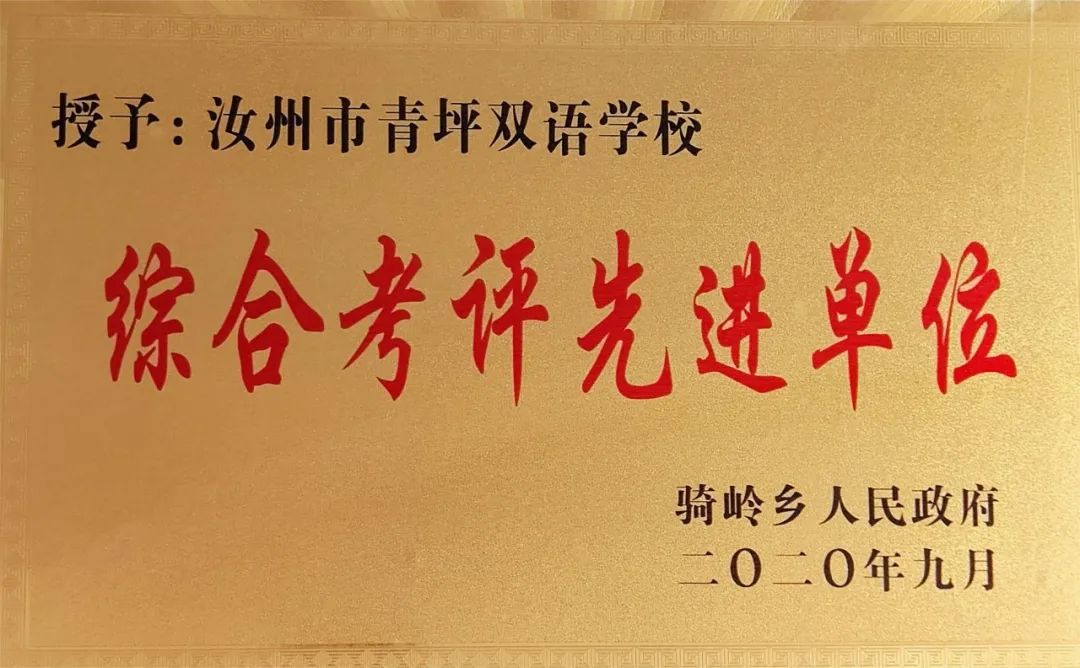 授予：汝州市青坪双语学校
综合考评先进单位
骑岭乡人民政府
二〇二〇年九月